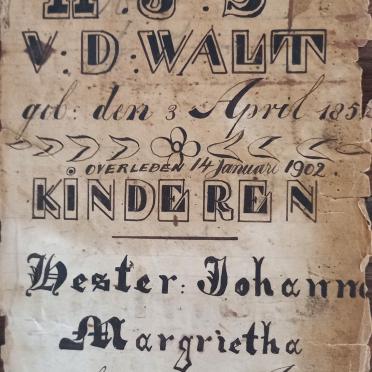 H J S
V:D:WALT
geb: den 3 April 185
OVERLEDEN 14 Januari 1902.
KINDEREN
Hester: Johann
Margrietha